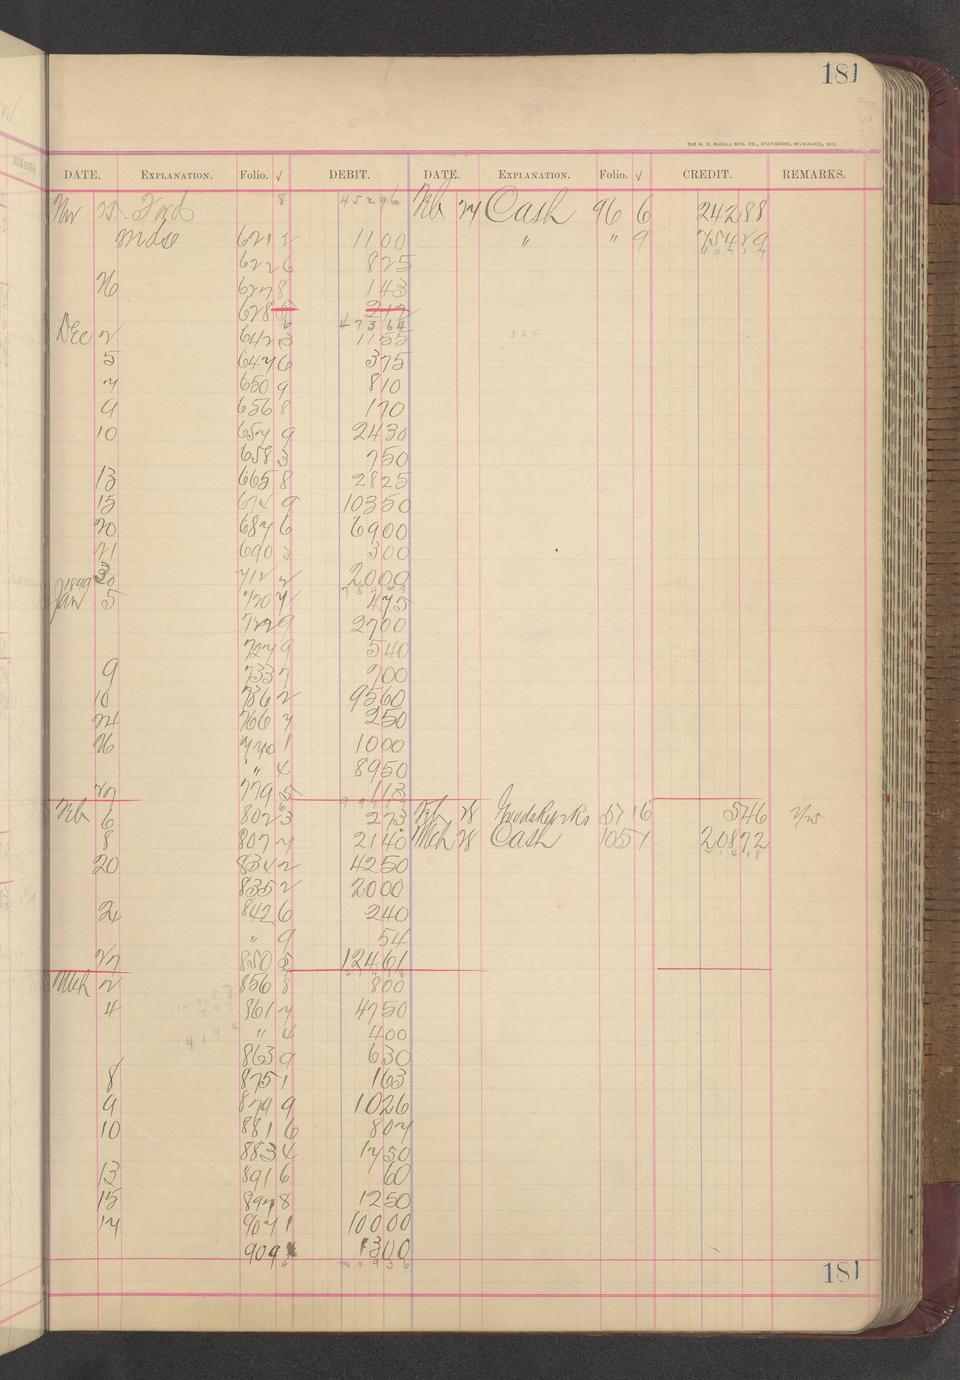 181
THE H. H. BADALL MFG. CO., STATIONERS, MILWAUKEE, WIS.
DATE. EXPLANATION. Folio. √ DEBIT. DATE. EXPLANATION. Folio. √ CREDIT. REMARKS.
Nov 25 Ford 8 45296 Feb 27 Cash 96 6 24288
Mdse 621 2 1100 " " 9 75429
622 6 825
26 627 8 143
628 212
6 47364
Dec 2 642 3 1155
5 647 6 375
7 650 9 810
9 656 8 170
10 657 9 2430
658 3 750
13 665 8 2825
15 674 9 10350
20 687 6 6900
21 690 3 300
30 712 2 2000
1899
Jan 5 720 7 475
722 9 2700
727 9 540
9 733 7 700
10 736 2 9560
24 766 7 250
26 770 1 1000
" 4 8950
27 779 5 113
Feb 6 802 3 273 Feb 28 571 6 546
8 807 7 2140 Mch 28 Cash 105 7 20872
20 834 2 4250
835 2 2000
24 842 6 240
" 9 54
27 850 5 12461
Mch 2 856 8 800
4 861 7 4750
" 4 400
863 9 630
8 875 1 163
9 879 9 1026
10 881 6 807
883 4 1750
13 891 6 60
15 897 8 1250
17 907 1 10000
909 1300
181